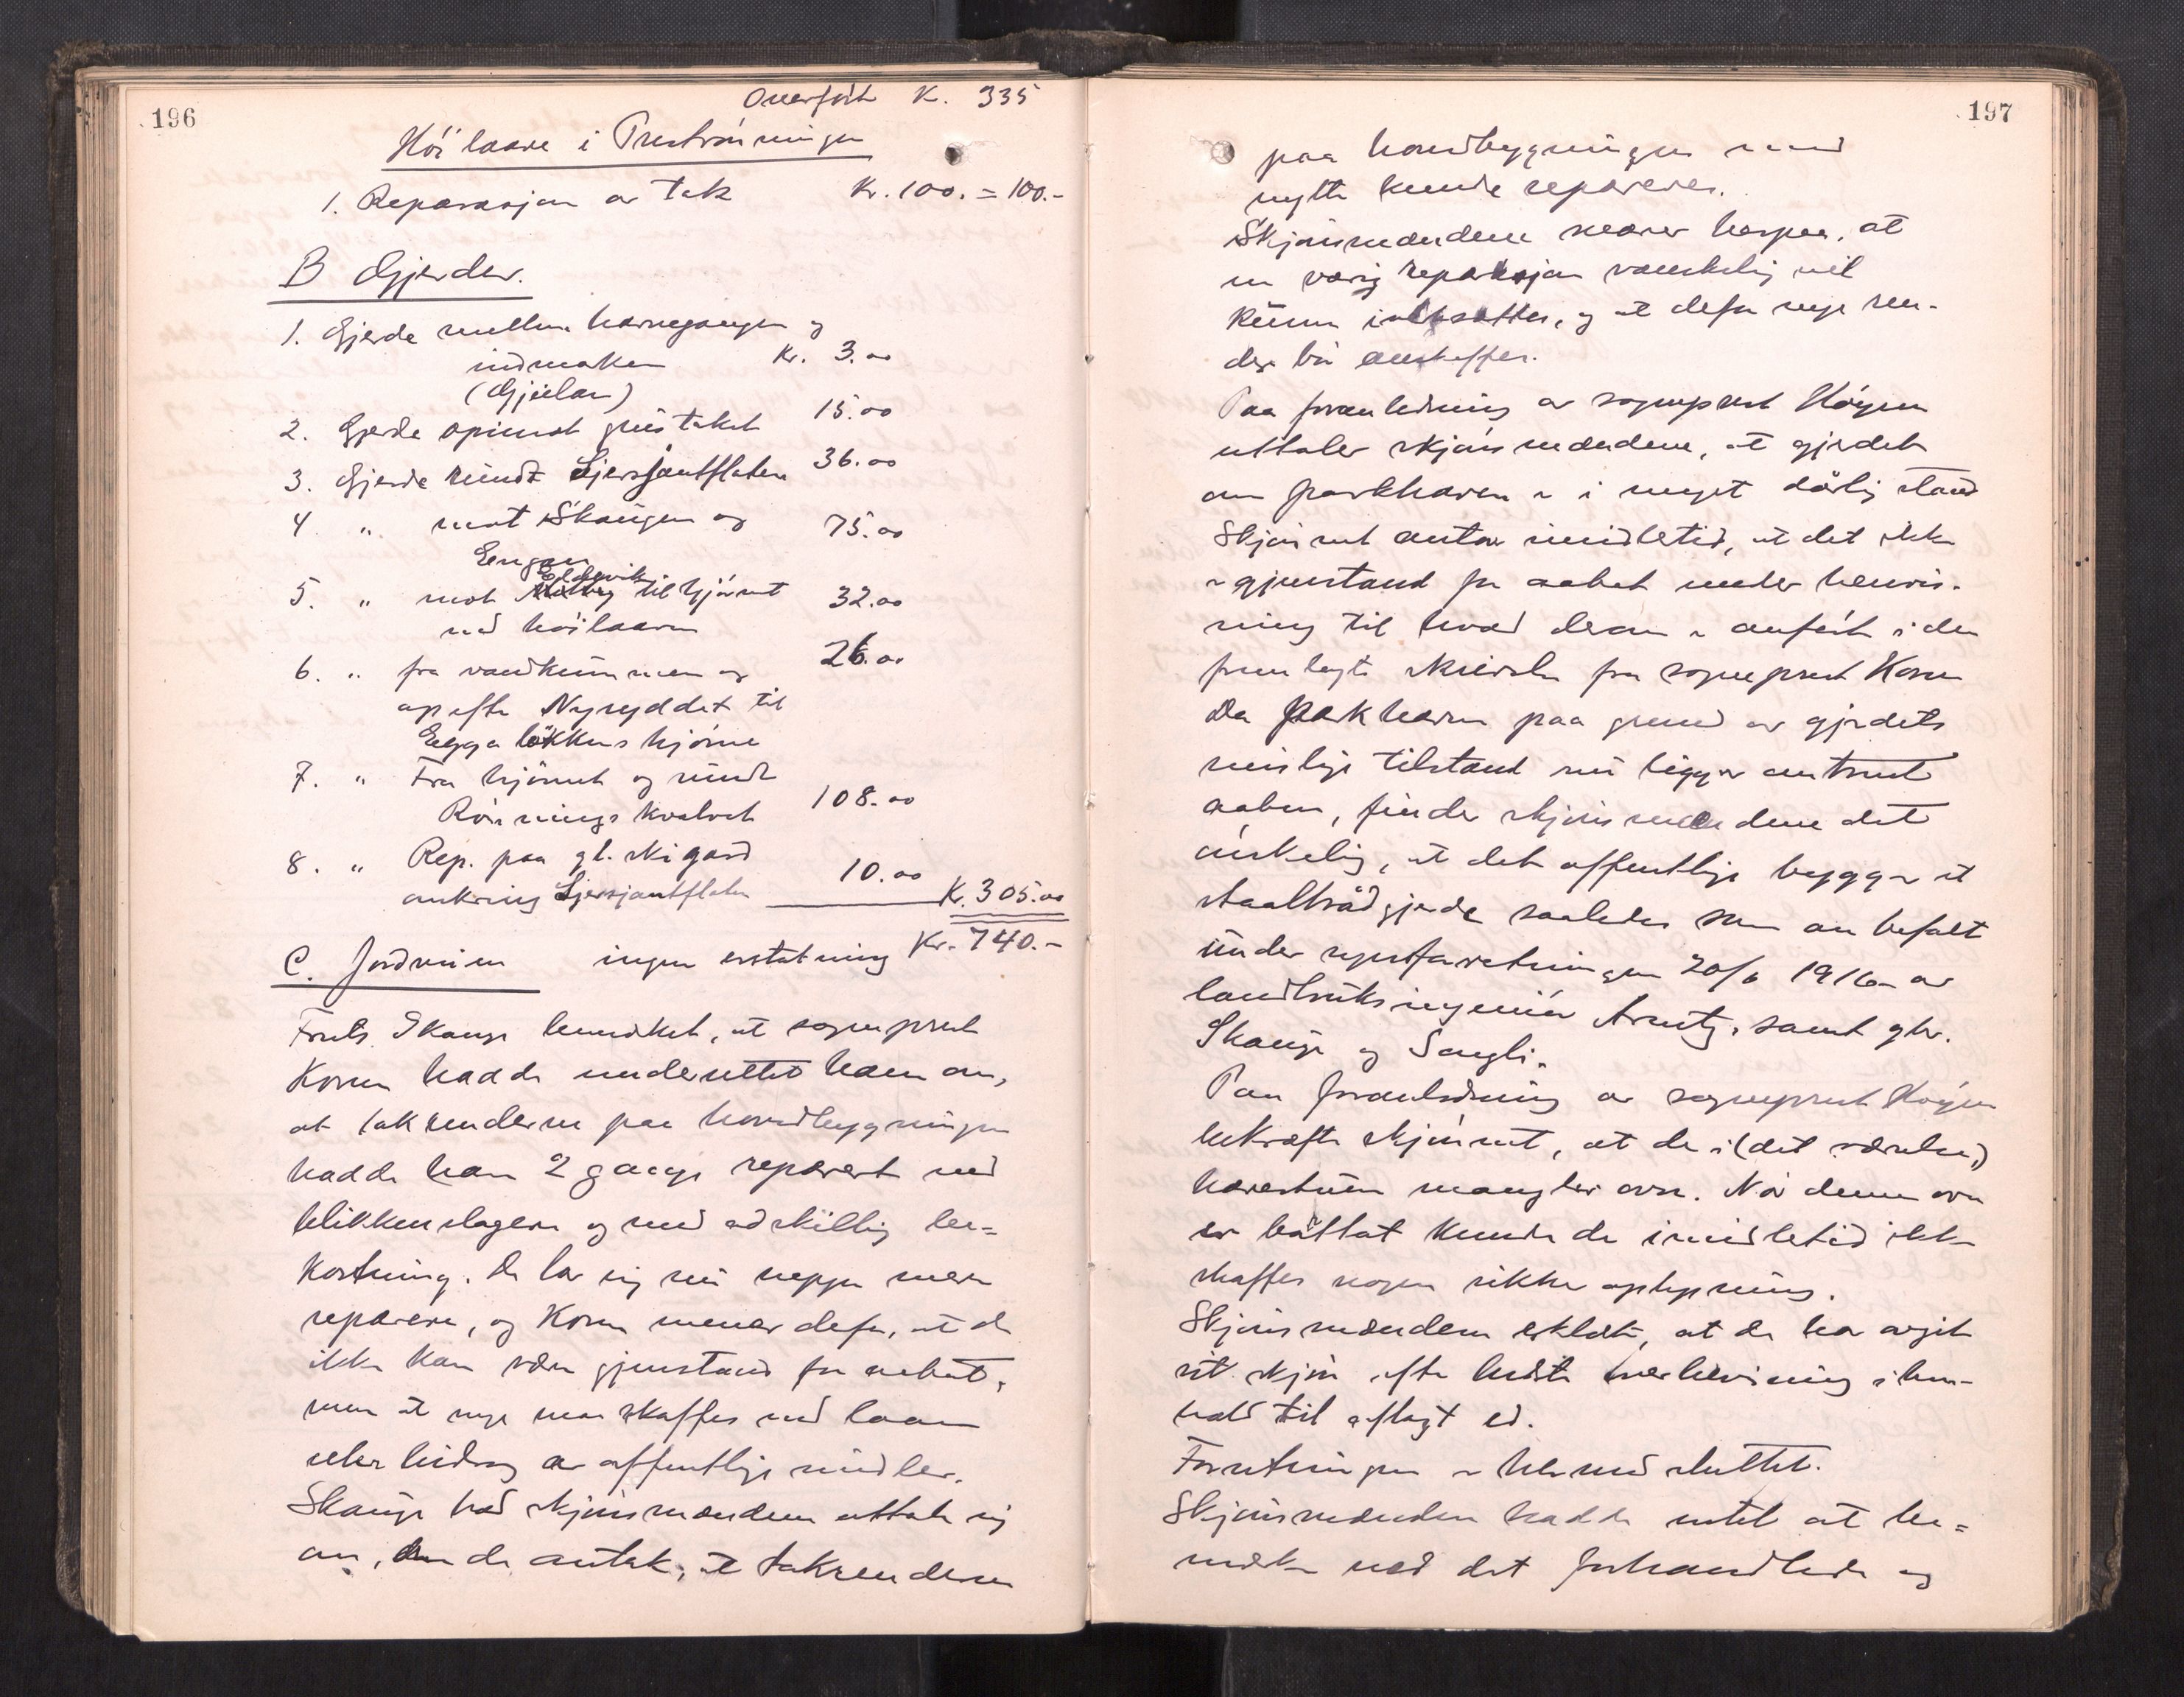 196
Overført K. 335
Høilaave i Prestrønningen
1. Reparasjon av tak Kr. 100. = 100.-
B Gjerder.
1. Gjerde mellem havnegangen og
indmaken Kr. 3.00
(Gjeilan)
2. Gjerde opimot grustaket 15.00
3. Gjerde rundt Sjersjantflaten 36.00
4 " mot Skaugen og 75.00
Eengen
5. " mot Eldevik til hjørnet 32.00
ved høilaaven
6. " fra vandkummen og 26.00
op efter Nyryddet til
Eggaløkkens hjørne
7. " Fra hjørnet og rundt
Rønningskvalvet 108.00
8. " Rep. paa gl. skigard
omkring Sjersjantflaten 10.00 Kr. 305.00
C. Jordveien ingen erstatning Kr. 740.-
Skauge bemerket, at sogneprest
Koren hadde underrettet ham om,
at takrenderne paa hovedbygningen
hadde han 2 gange reparert ved
blikkenslagere og med adskillig be=
kostning. De lar sig nu neppe mere
reparere, og Koren mener derfor, at de
ikke kan være gjenstand for aabot,
men at nye maa skaffes ved laan
eller bidrag av offentlige midler.
Skauge bad skjønsmændene uttale sig
om, om de antok, at takrenderne
197
paa hovedbygningen med
nytte kunde repareres.
Skjønsmændene svarer herpaa, at
en varig reparasjon vanskelig vil
kunne iverksættes, og at derfor nye ren-
der bør anskaffes.
Paa foranledning av sogneprest Höyem
uttaler skjønsmændene, at gjerdet
om parkhaven er i meget dårlig stand
Skjønnet antar imidlertid, at det ikke
er gjenstand for aabot under henvis-
ning til hvad derom er anført i den
fremlagte skrivelse fra sogneprest Koren
Da parkhaven paa grund av gjerdets
tilstand nu ligger omtrent
aaben, finder skjønsmændene det
ønskelig, at det offentlige bygger et
staaltrådgjerde saaledes som anbefalt
under synsforretningen 20/6 1916 av
landbruksingeniør samt gbr.
Skauge og Songli.
Paa foranledning av sogneprest Höyem
bekræfter skjønnet, at der i (det værelse)
mangler ovn. Når denne ovn
er bortat kunde der imidlertid ikke
skaffes nogen sikker oplysning.
Skjønsmændene erklærte, at de har avgit
sit skjøn efter bedste overbevisning i hen-
hold til aflagt ed.
Forretningen er hermed sluttet.
Skjønsmændene hadde intet at be=
merke ved det forhandlede og